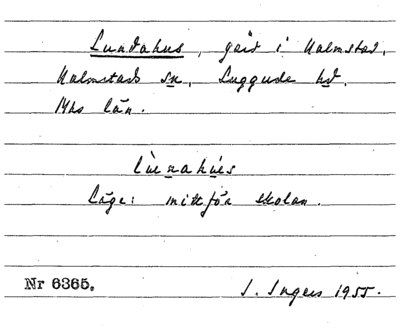 Lundahus, gård i Halmstad,
Halmstads sn, Luggude hd.
Mhs län.
lùnahúes
Läge: mitt för skolan.
Nr 6365. I. Ingers 1955.